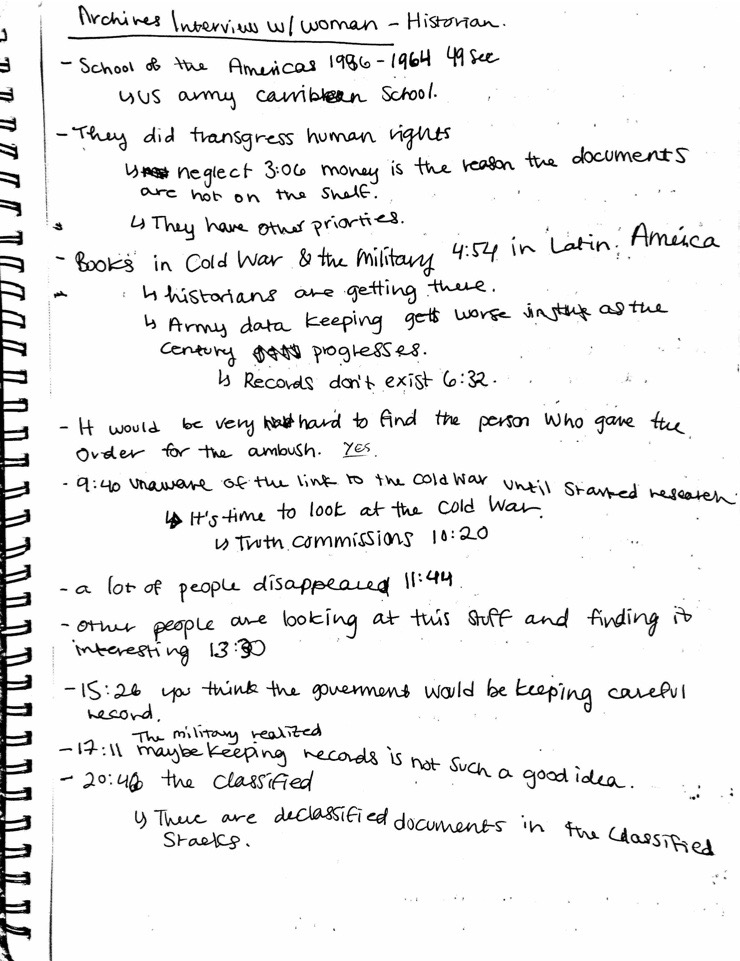 Archives Interview w/ woman - Historian.
- School of the Americas 1986-1964 49 sec
↳ US army carribean School.
- They did transgress human rights
↳ neglect 3:06 money is the reason the documents
are not on the shelf.
↳ They have other priorties.
- Books in Cold War & the Military 4:54 in Latin America
↳ historians are getting there.
↳ Army data keeping gets worse as the
century progresses.
↳ Records don't exist 6:32.
- It would be very hard to find the person who gave the
order for the ambush. Yes.
- 9:40 unaware of the link to the Cold War until started research
↳ It's time to look at the Cold War.
↳ Truth commissions 10:20
- a lot of people disappeared 11:44
- other people are looking at this stuff and finding it
interesting 13:30
- 15:26 you think the goverment would be keeping careful
record.
The military realized
- 17:11 maybe keeping records is not such a good idea.
- 20:46 the classified
↳ There are declassified documents in the classified
Stacks.